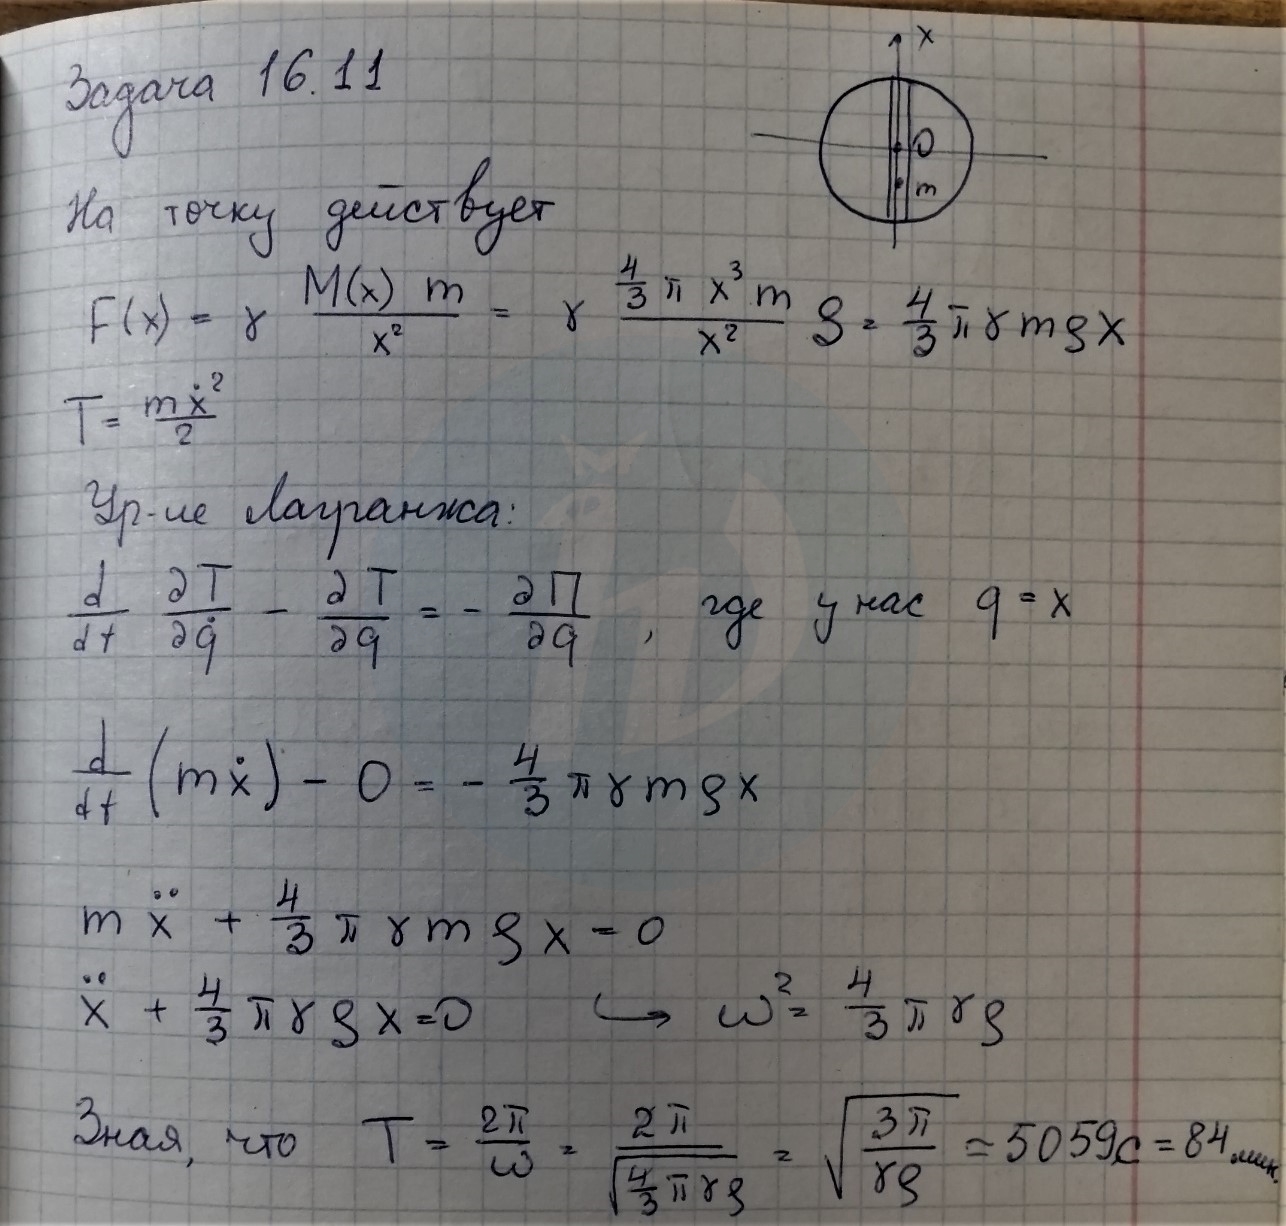 Задача 16.11
x
O
m
На точку действует
F(x) = γ M(x) m / x² = γ 4/3 π x³ m / x² ρ = 4/3 π γ m ρ x
T = mẋ² / 2
Ур-ие Лагранжа:
d/dt ∂T/∂q̇ - ∂T/∂q = - ∂П/∂q , где у нас q = x
d/dt (mẋ) - 0 = - 4/3 π γ m ρ x
m ẍ + 4/3 π γ m ρ x = 0
ẍ + 4/3 π γ ρ x = 0 ↪ ω² = 4/3 π γ ρ
Зная, что T = 2π/ω = 2π / √(4/3 π γ ρ) = √(3π / γρ) ≈ 5059с = 84 мин.